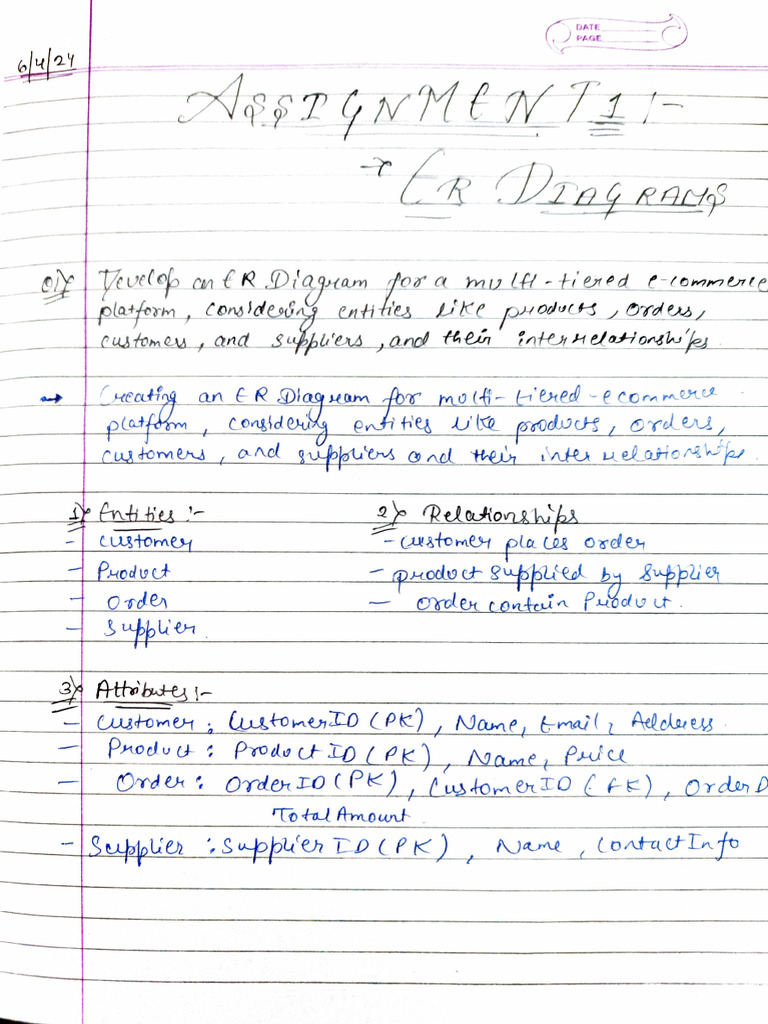 DATE
PAGE
6/4/24
ASSIGNMENT 1 :-
→ ER DIAGRAMS
Q1) Develop an ER Diagram for a multi-tiered e-commerce
platform, considering entities like products, orders,
customers, and suppliers, and their interrelationships.
→ Creating an ER Diagram for multi-tiered-ecommerce
platform, considering entities like products, orders,
customers, and suppliers and their interrelationships.
1) Entities :-
- customer
- Product
- Order
- Supplier.
2) Relationships
- customer places order
- product supplied by supplier
- order contain Product.
3) Attributes :-
- Customer : CustomerID (PK), Name, Email, Address.
- Product : Product ID (PK), Name, Price
- Order : Order ID (PK), CustomerID (FK), Order D
Total Amount.
- Supplier : Supplier ID (PK), Name, Contact Info